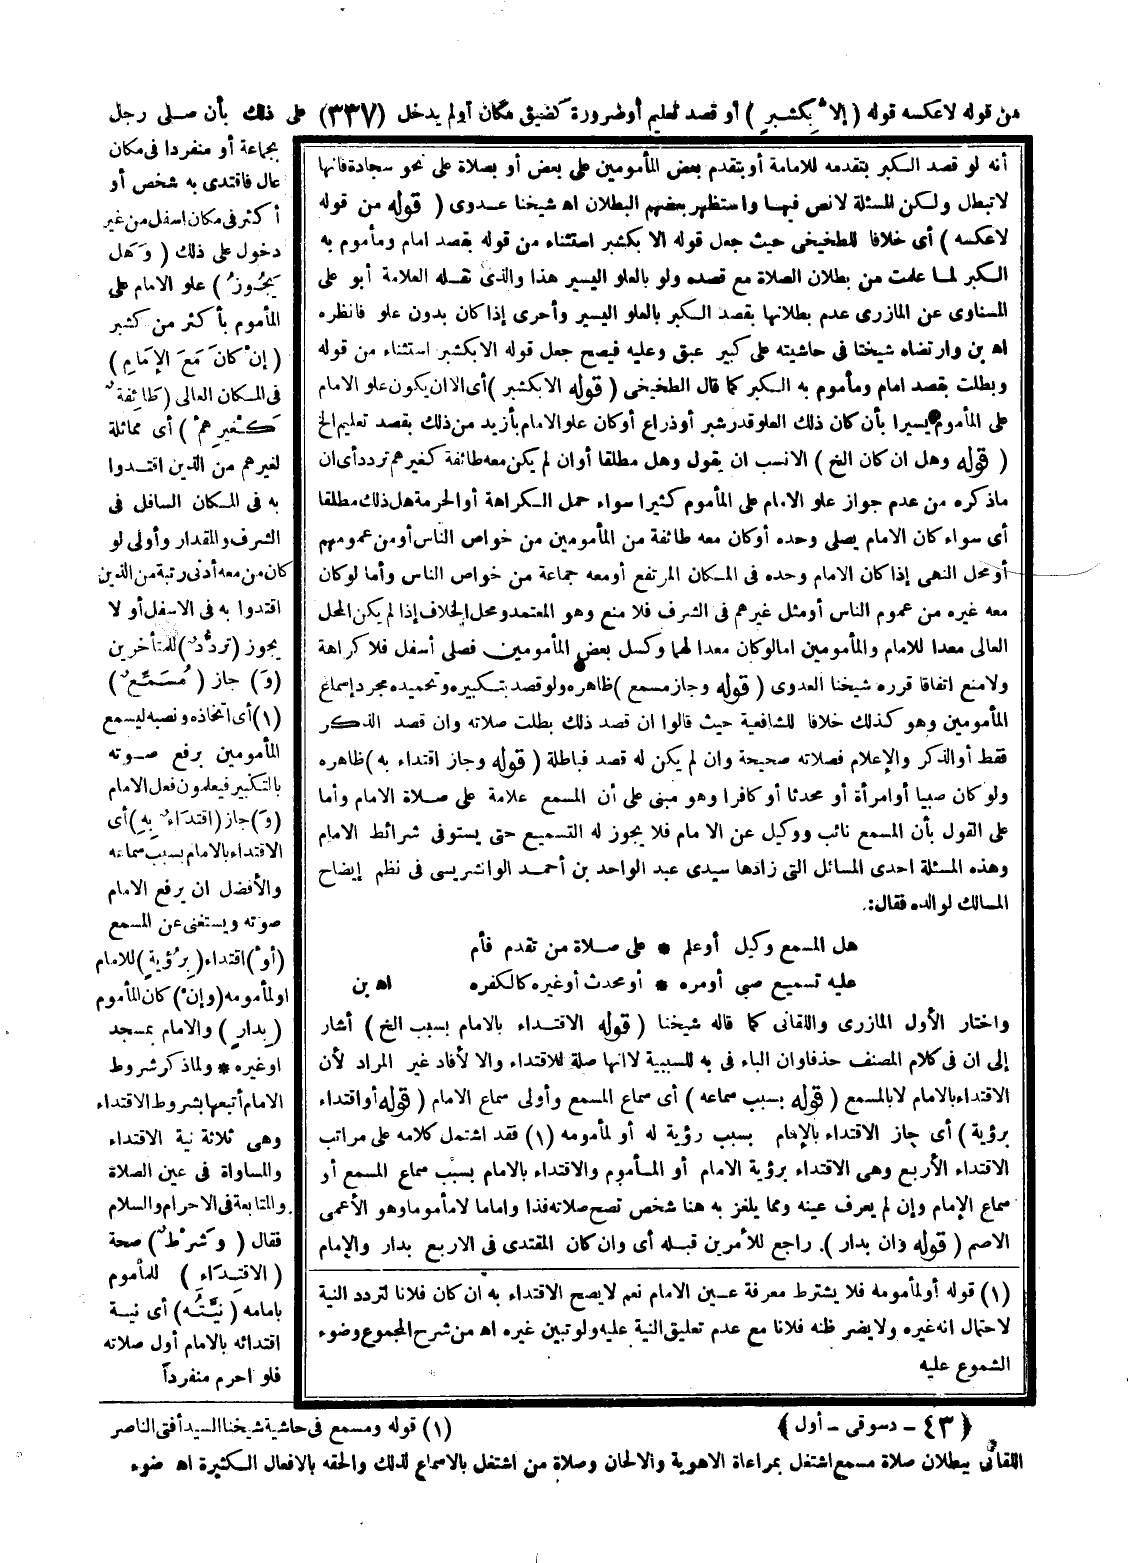 من قوله لاعكسه قوله ( إلا بِكشبرٍ ) أو قصد تعليم أوضرورة كضيق مكان أولم يدخل (٣٣٧) على ذلك بأن صلى رجل
بجماعة أو منفردا فى مكان
عال فاقتدى به شخص أو
أكثر فى مكان اسفل من غير
دخول على ذلك ( وَهَل
يَجُوزُ ) علو الامام على
المأموم بأكثر من كشبر
( إنْ كانَ مَعَ الإِمَامِ )
فى المكان العالى ( طَائِفةٌ
كَغَيرِهمْ ) أى مماثلة
لغيرهم من الذين اقتدوا
به فى المكان السافل فى
الشرف والمقدار وأولى لو
كان من معه أدنى رتبة من الذين
اقتدوا به فى الاسفل أو لا
يجوز ( تردُّدٌ ) للمتأخرين
( وَ ) جاز ( مُسَمِّعٌ )
(١) أى اتخاذه ونصبه ليسمع
المأمومين برفع صوته
بالتكبير فيعلمون فعل الامام
( وَ ) جاز ( اقتدَاءٌ بِهِ ) أى
الاقتداء بالامام بسبب سماعه
والأفضل ان يرفع الامام
صوته ويستغنى عن المسمع
( أوْ ) اقتداء ( بِرُؤيةٍ ) للامام
اولمأمومه ( وإنْ ) كان المأموم
( بِدارٍ ) والامام بمسجد
اوغيره * ولماذكر شروط
الامام أتبعها بشروط الاقتداء
وهى ثلاثة نية الاقتداء
والمساواة فى عين الصلاة
والمتابعة فى الاحرام والسلام
فقال ( وَشَرْطُ ) صحة
( الاقتِدَاءِ ) للمأموم
بامامه ( نيَّتُه ) أى نية
اقتدائه بالامام أول صلاته
فلو احرم منفرداً
أنه لو قصد الكبر بتقدمه للامامة أو بتقدم بعض المأمومين على بعض أو بصلاة على نحو سجادة فانها
لاتبطل ولكن المسئلة لانص فيها واستظهر بعضهم البطلان اه شيخنا عدوى ( قوله من قوله
لاعكسه ) أى خلافا للطخيخى حيث جعل قوله الا بكشبر استثناء من قوله بقصد امام ومأموم به
الكبر لما علمت من بطلان الصلاة مع قصده ولو بالعلو اليسير هذا والذى نقله العلامة أبو على
المسناوى عن المازرى عدم بطلانها بقصد الكبر بالعلو اليسير وأحرى إذا كان بدون علو فانظره
اه بن وارتضاه شيخنا فى حاشيته على كبير عبق وعليه فيصح جعل قوله الابكشبر استثناء من قوله
وبطلت بقصد امام ومأموم به الكبر كما قال الطخيخى ( قوله الابكشبر ) أى الاان يكون علو الامام
على المأموم يسيرا بأن كان ذلك العلو قدر شبر أوذراع أوكان علو الامام بأزيد من ذلك بقصد تعليم الخ
( قوله وهل ان كان الخ ) الانسب ان يقول وهل مطلقا أوان لم يكن معه طائفة كغيرهم تردد أى ان
ماذكره من عدم جواز علو الامام على المأموم كثيرا سواء حمل الكراهة أوالحرمة هل ذلك مطلقا
أى سواء كان الامام يصلى وحده أوكان معه طائفة من المأمومين من خواص الناس أومن عمومهم
أومحل النهى إذا كان الامام وحده فى المكان المرتفع أومعه جماعة من خواص الناس وأما لوكان
معه غيره من عموم الناس أومثل غيرهم فى الشرف فلا منع وهو المعتمد ومحل الخلاف إذا لم يكن المحل
العالى معدا للامام والمأمومين امالوكان معدا لهما وكسل بعض المأمومين فصلى أسفل فلا كراهة
ولامنع اتفاقا قرره شيخنا العدوى ( قوله وجاز مسمع ) ظاهره ولو قصد بتكبيره وتحميده مجرد إسماع
المأمومين وهو كذلك خلافا للشافعية حيث قالوا ان قصد ذلك بطلت صلاته وان قصد الذكر
فقط أوالذكر والإعلام فصلاته صحيحة وان لم يكن له قصد فباطلة ( قوله وجاز اقتداء به ) ظاهره
ولو كان صبيا أوامرأة أو محدثا أو كافرا وهو مبنى على أن المسمع علامة على صلاة الامام وأما
على القول بأن المسمع نائب ووكيل عن الامام فلا يجوز له التسميع حتى يستوفى شرائط الامام
وهذه المسئلة احدى المسائل التى زادها سيدى عبد الواحد بن أحمد الوانشريسى فى نظم إيضاح
المسالك لوالده فقال:
هل المسمع وكيل أوعلم * على صلاة من تقدم فأم
عليه تسميع صبى أومره * أومحدث أوغيره كالكفره اه بن
واختار الأول المازرى واللقانى كما قاله شيخنا ( قوله الاقتداء بالامام بسبب الخ ) أشار
إلى ان فى كلام المصنف حذفاوان الباء فى به للسببية لاانها صلة للاقتداء والا لأفاد غير المراد لأن
الاقتداء بالامام لابالمسمع ( قوله بسبب سماعه ) أى سماع المسمع وأولى سماع الامام ( قوله أواقتداء
برؤية ) أى جاز الاقتداء بالإمام بسبب رؤية له أو لمأمومه (١) فقد اشتمل كلامه على مراتب
الاقتداء الأربع وهى الاقتداء برؤية الامام أو المأموم والاقتداء بالامام بسبب سماع المسمع أو
سماع الإمام وإن لم يعرف عينه ومما يلغز به هنا شخص تصح صلاته فذا واماما لامأموما وهو الأعمى
الاصم ( قوله وان بدار ) . راجع للأمرين قبله أى وان كان المقتدى فى الاربع بدار والإمام
(١) قوله أولمأمومه فلا يشترط معرفة عين الامام نعم لايصح الاقتداء به ان كان فلانا لتردد النية
لاحتمال انه غيره ولايضر ظنه فلانا مع عدم تعليق النية عليه ولو تبين غيره اه من شرح المجموع وضوء
الشموع عليه
﴿ ٤٣ - دسوقى - أول ﴾ (١) قوله ومسمع فى حاشية شيخنا السيد أفتى الناصر
اللقانى ببطلان صلاة مسمع اشتغل بمراعاة الاهوية والالحان وصلاة من اشتغل بالاسماع لذلك والحقه بالافعال الكثيرة اه ضوء